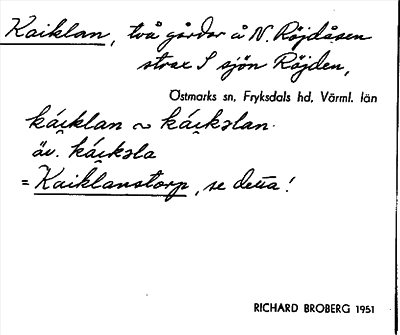 Kaiklan, två gårdar å N. Röjdåsen
strax S sjön Röjden,
Östmarks sn, Fryksdals hd, Värml. län
kái̯klan ~ kái̯kəlan.
äv. kái̯kəla
= Kaiklanstorp, se detta!
RICHARD BROBERG 1951